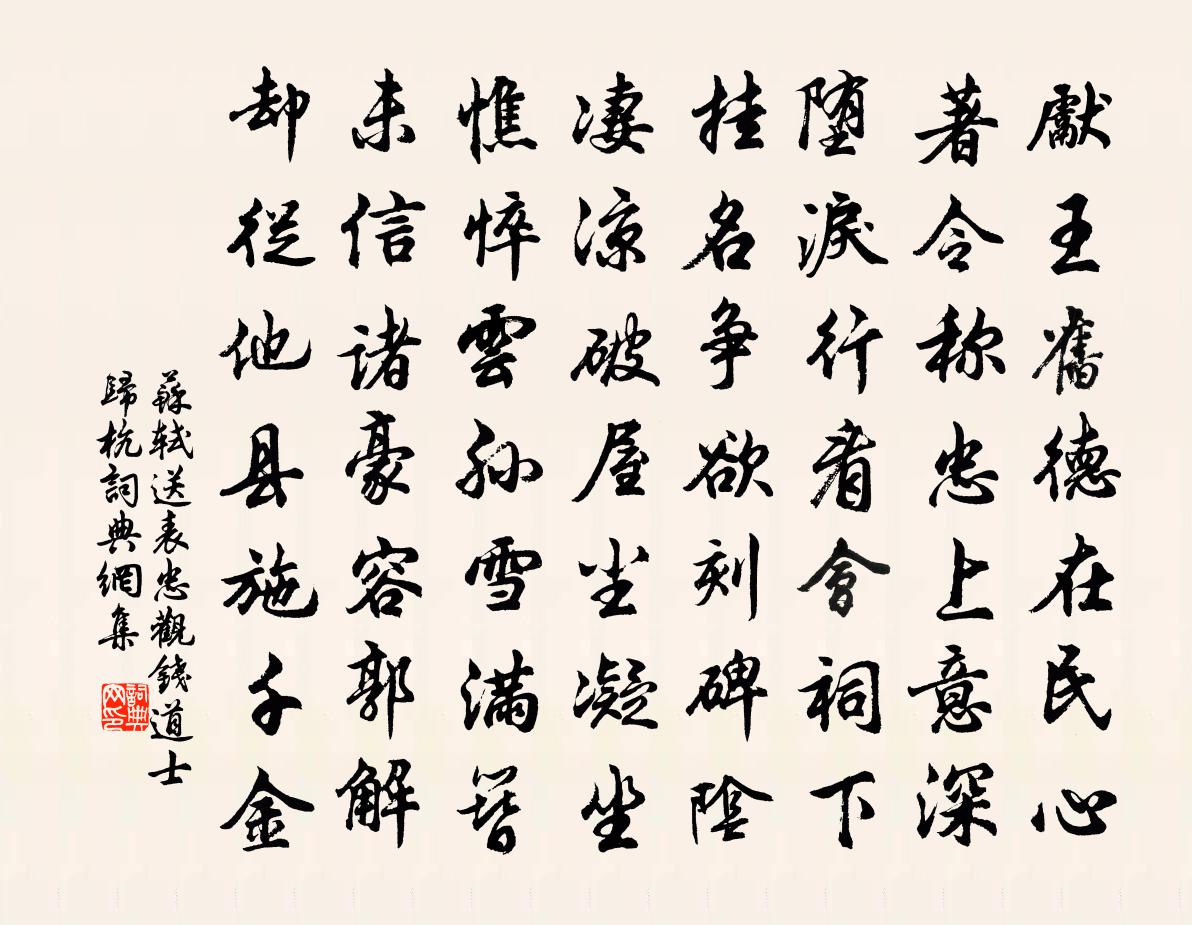 獻王舊德在民心
著令称忠上意深
堕淚行看會祠下
挂名争欲刻碑陰
凄涼破屋尘凝坐
憔悴雲孙雪满簪
未信诸豪容郭解
却従他县施千金
蘇軾送表忠觀錢道士
歸杭詞典網集
詞典网印